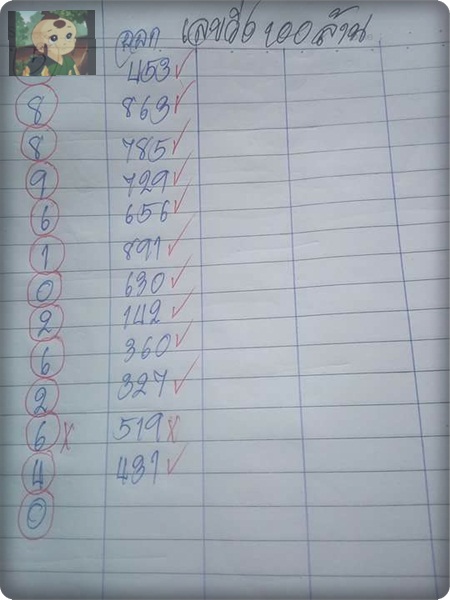 เลขวิ่ง 100 ล้าน
453 ✓
8 863 ✓
8 785 ✓
9 729 ✓
6 656 ✓
1 891 ✓
0 630 ✓
2 142 ✓
6 360 ✓
2 327 ✓
6 x 519 x
4 431 ✓
0